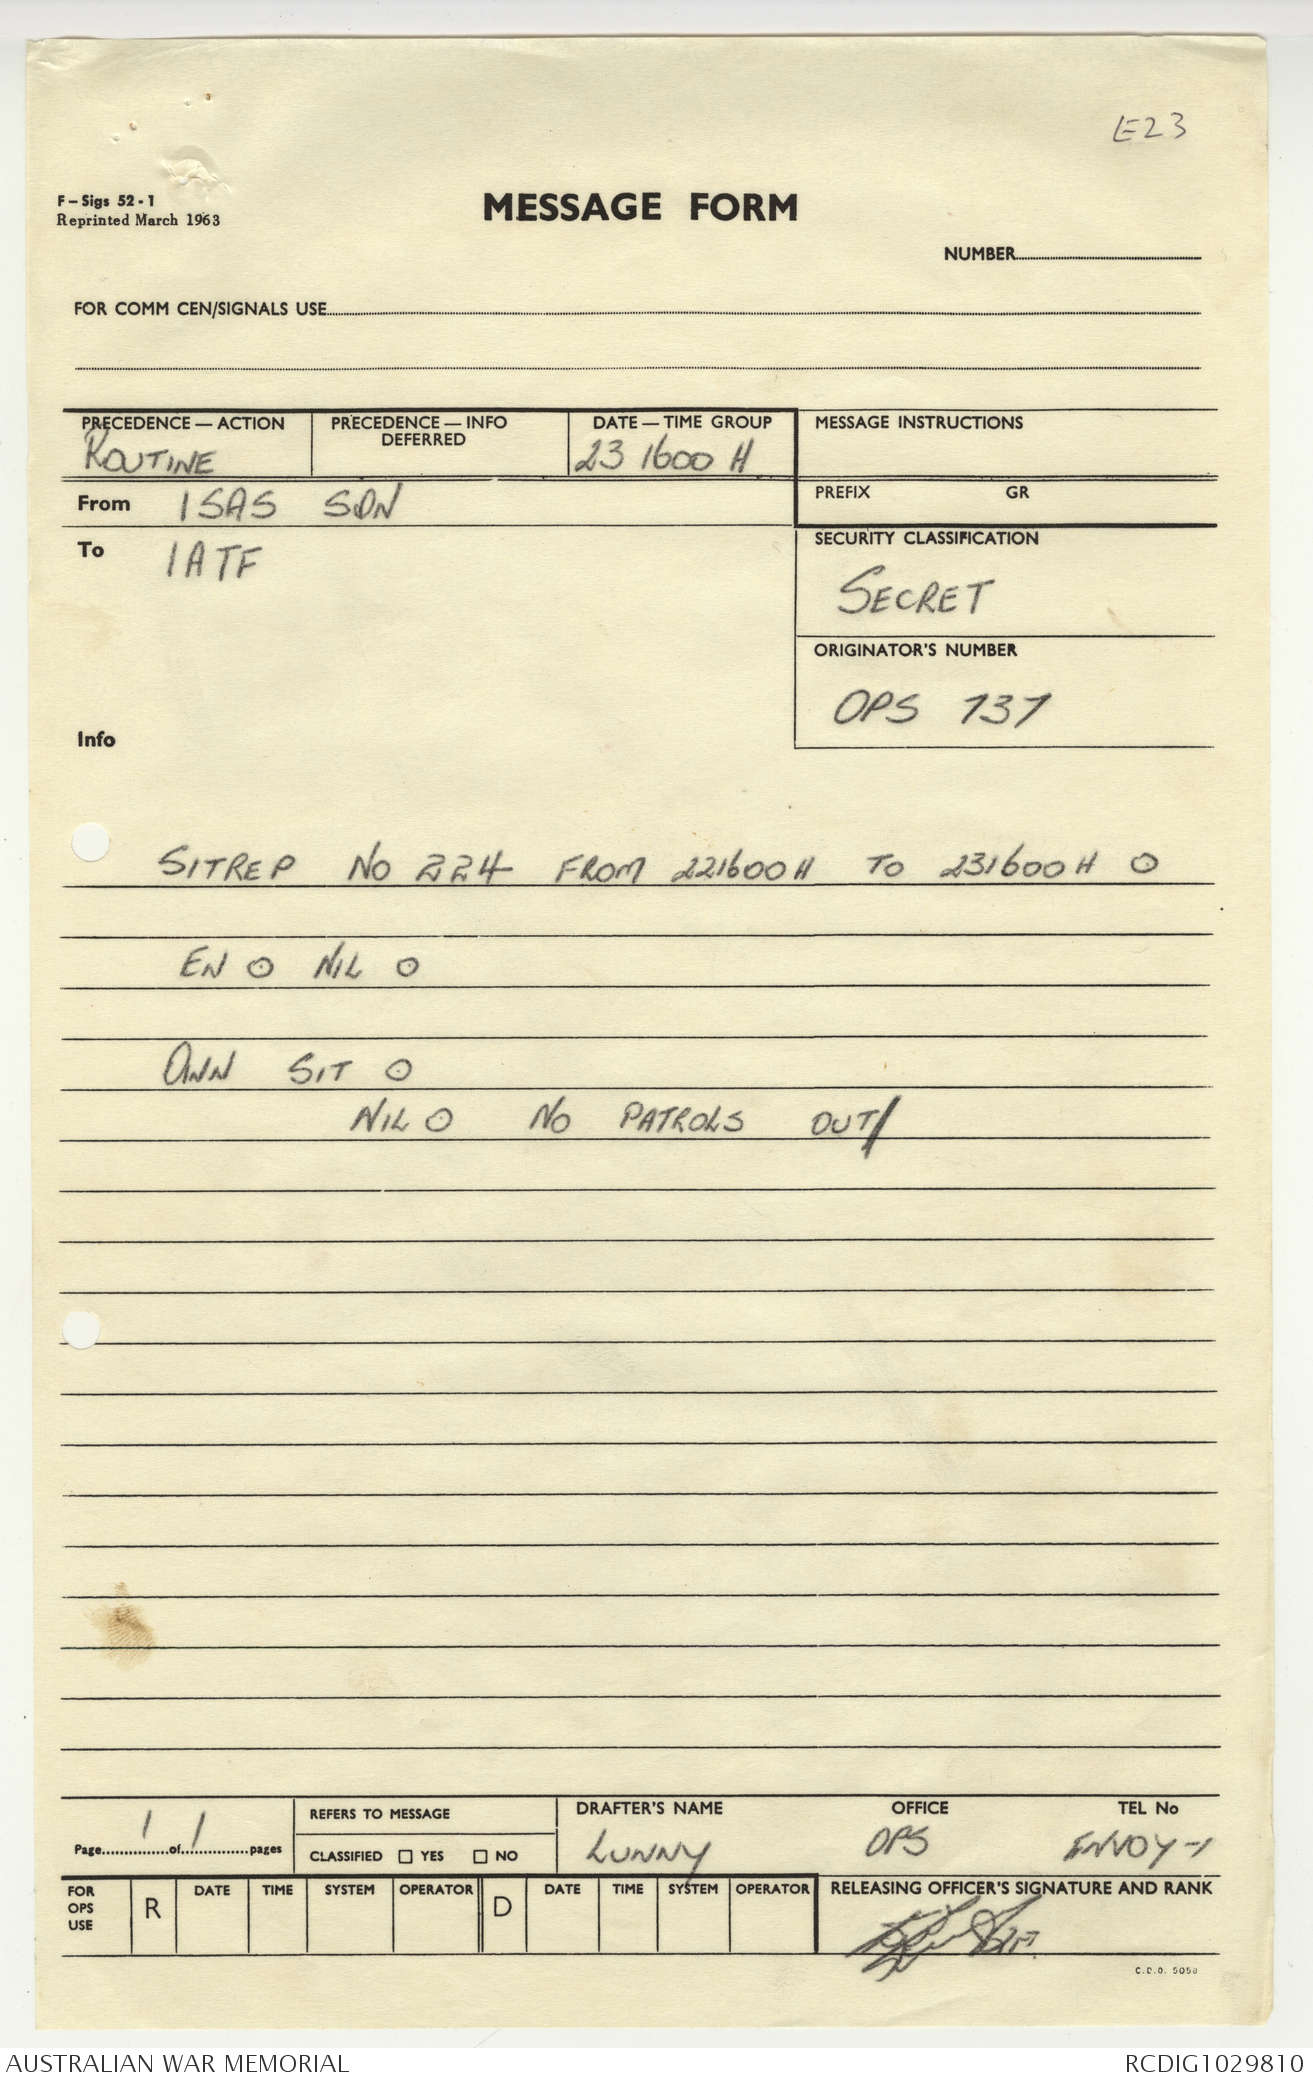 E23
F - Sigs 52 - 1
Reprinted March 1963
MESSAGE FORM
NUMBER
FOR COMM CEN/SIGNALS USE
PRECEDENCE — ACTION
ROUTINE
PRECEDENCE — INFO
DEFERRED
DATE — TIME GROUP
23 1600 H
MESSAGE INSTRUCTIONS
PREFIX GR
From 1 SAS SQN
To 1 ATF
SECURITY CLASSIFICATION
SECRET
ORIGINATOR'S NUMBER
OPS 737
Info
SITREP NO 224 FROM 221600H TO 231600H O
EN O NIL O
OWN SIT O
NIL O NO PATROLS OUT/
Page 1 of 1 pages
REFERS TO MESSAGE
CLASSIFIED YES NO
DRAFTER'S NAME
LUNNY
OFFICE
OPS
TEL No
ENVOY-1
FOR
OPS
USE
R
DATE TIME SYSTEM OPERATOR
D
DATE TIME SYSTEM OPERATOR
RELEASING OFFICER'S SIGNATURE AND RANK
C.D.O. 5058
AUSTRALIAN WAR MEMORIAL
RCDIG1029810